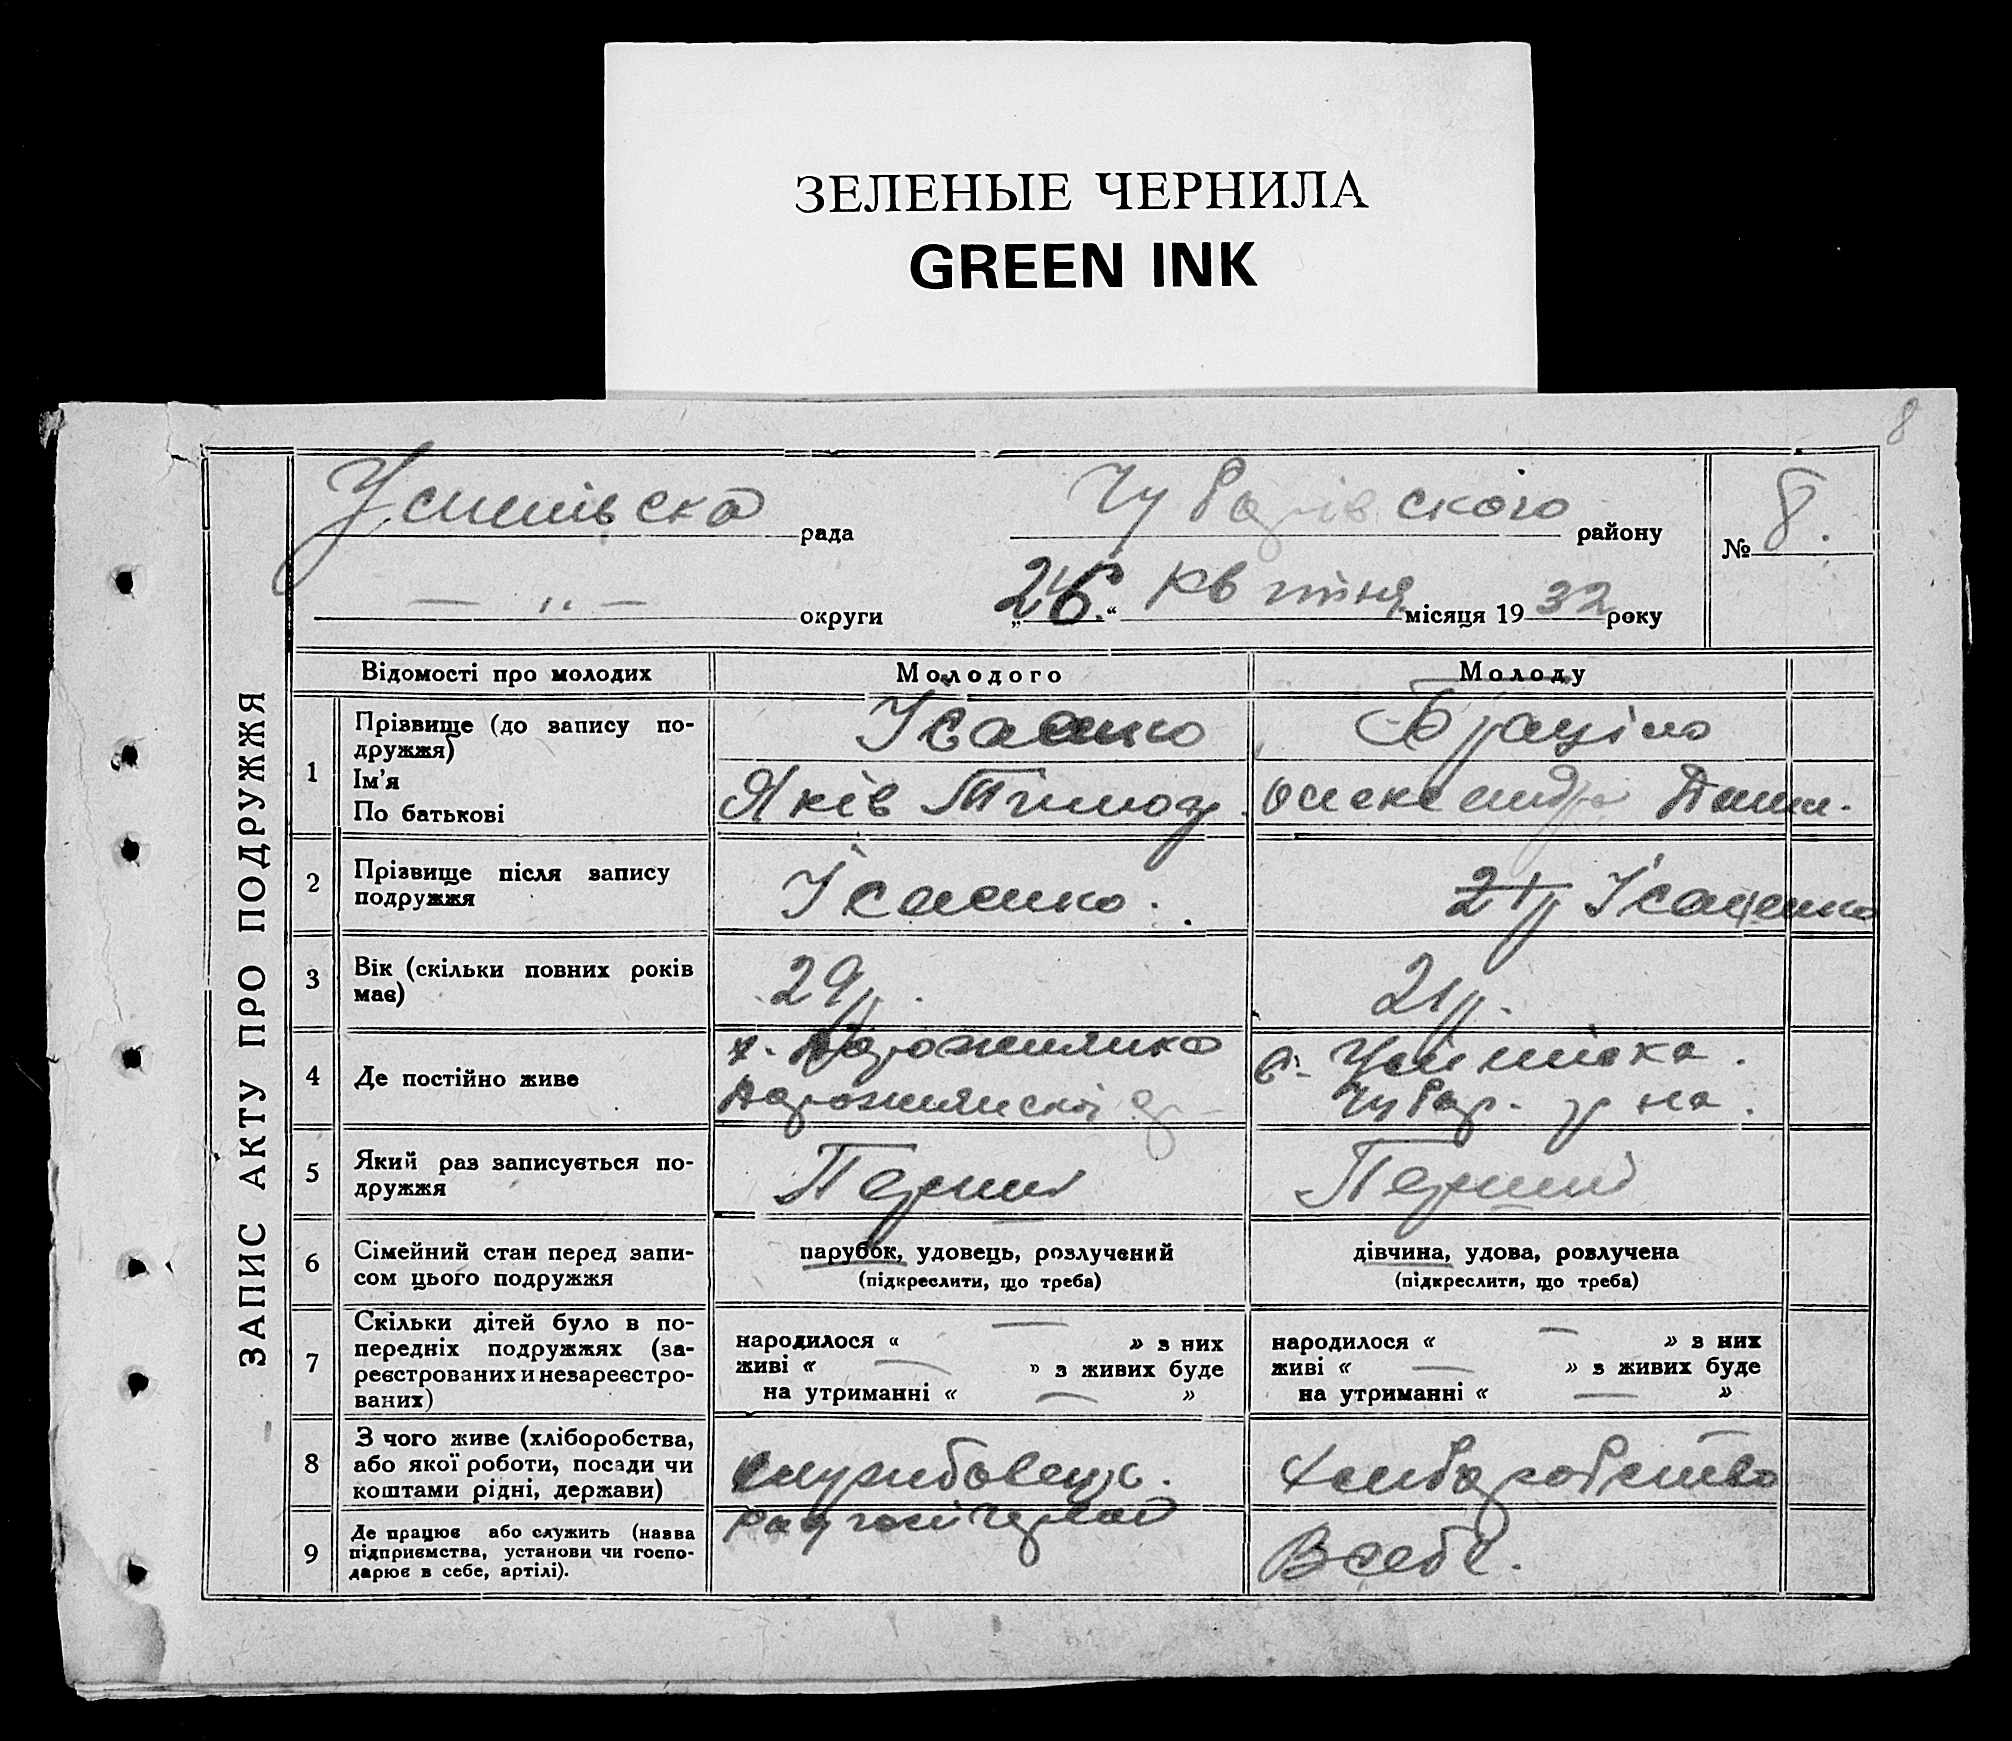 ЗЕЛЕНЫЕ ЧЕРНИЛА
GREEN INK
8
ЗАПИС АКТУ ПРО ПОДРУЖЖЯ
рада
Чубарівського району
№ 8.
— „ — округи
„26.“ Квітня місяця 1932 року
Відомості про молодих
Молодого
Молоду
1
Прізвище (до запису по-
дружжя)
Ім'я
По батькові
Яків Тимоф.
Олександра Данил.
2
Прізвище після запису
подружжя
Ісаенко.
21р Ісаценко
3
Вік (скільки повних років
має)
29р.
21р.
4
Де постійно живе
с.
Чубар. р на.
5
Який раз записується по-
дружжя
Перший
Перший
6
Сімейний стан перед запи-
сом цього подружжя
парубок, удовець, розлучений
(підкреслити, що треба)
дівчина, удова, розлучена
(підкреслити, що треба)
7
Скільки дітей було в по-
передніх подружжях (за-
реєстрованих и незареєстро-
ваних)
народилося « — » з них
живі « — » з живих буде
на утриманні « — »
народилося « — » з них
живі « — » з живих буде
на утриманні « — »
8
З чого живе (хліборобства,
або якої роботи, посади чи
коштами рідні, держави)
службовець.
хліборобство
9
Де працює або служить (назва
підприємства, установи чи госпо-
дарює в себе, артілі).
В себе.